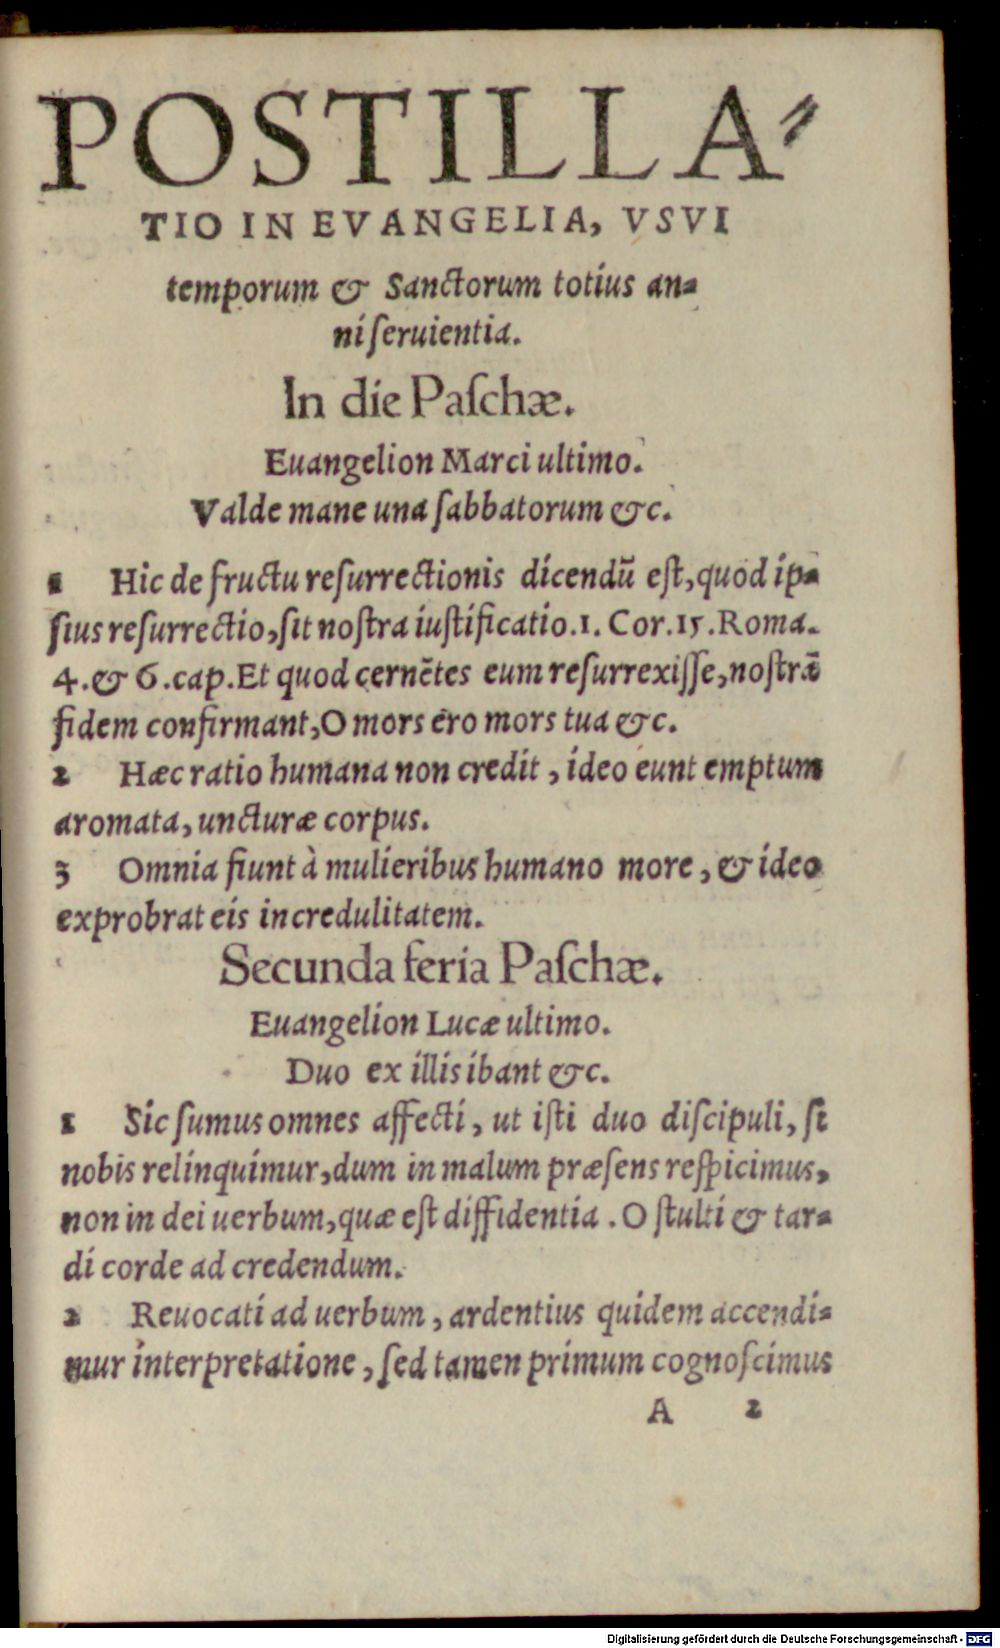 POSTILLA⸗
TIO IN EVANGELIA, VSVI
temporum & Sanctorum totius an⸗
ni ſeruientia.
In die Paſchæ.
Euangelion Marci ultimo.
Valde mane una ſabbatorum &c.
1 Hic de fructu reſurrectionis dicendū eſt, quod ip⸗
ſius reſurrectio, ſit noſtra iuſtificatio. 1. Cor. 15. Roma.
4. & 6. cap. Et quod cernētes eum reſurrexiſſe, noſtrā
fidem confirmant, O mors ero mors tua &c.
2 Hæc ratio humana non credit, ideo eunt emptum
aromata, uncturæ corpus.
3 Omnia fiunt à mulieribus humano more, & ideo
exprobrat eis incredulitatem.
Secunda feria Paſchæ.
Euangelion Lucæ ultimo.
Duo ex illis ibant &c.
1 Sic ſumus omnes affecti, ut iſti duo diſcipuli, ſi
nobis relinquimur, dum in malum præſens reſpicimus,
non in dei uerbum, quæ eſt diffidentia. O ſtulti & tar⸗
di corde ad credendum.
2 Reuocati ad uerbum, ardentius quidem accendi⸗
mur interpretatione, ſed tamen primum cognoſcimus
A 2
Digitalisierung gefördert durch die Deutsche Forschungsgemeinschaft - DFG